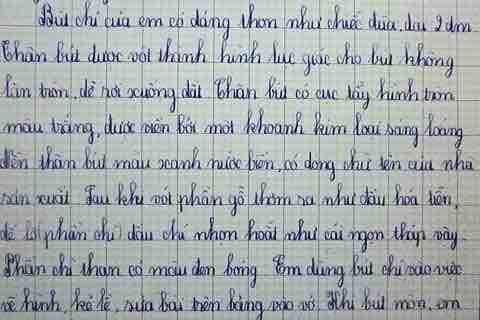 Bút chì của em có dáng thon như chiếc đũa, dài 2 dm.
Thân bút được vót thành hình lục giác cho bút không
lăn tròn, dễ rơi xuống đất. Thân bút có cục tẩy hình tròn
màu trắng, được viền bởi một khoanh kim loại sáng loáng
đến thân bút màu xanh nước biển, có dòng chữ tên của nhà
sản xuất. Sau khi vót phần gỗ thơm ra như dầu hoa tiên,
để lộ (phần chì) đầu chì nhọn hoắt như cái ngọn tháp vậy.
Phần chì than có màu đen bóng. Em dùng bút chì vào việc
vẽ hình, kẻ lề, sửa bài trên bảng vào vở. Khi bút mòn, em